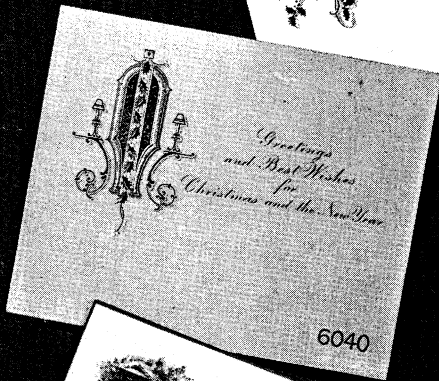 Greetings
and Best Wishes
for
Christmas and the New Year
6040